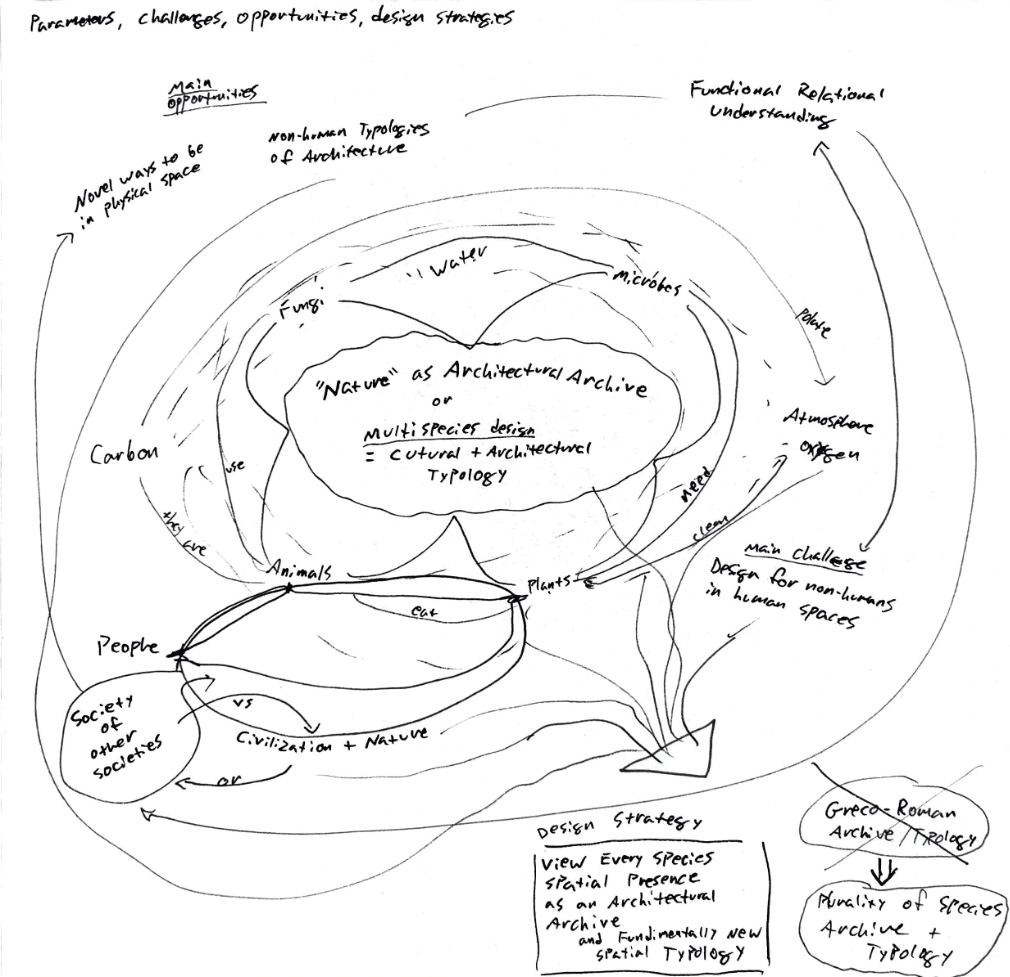 Parameters, challenges, opportunities, design strategies
Main
opportunities
Functional Relational
Understanding
Non-human Typologies
of Architecture
Novel ways to be
in physical space
Water
Fungi
Microbes
Polute
"Nature" as Architectural Archive
or
Multispecies design
= Cutural + Architectural
Typology
Atmosphere
- oxygen
Carbon
use
need
they are
clean
Main Challenge
Design for non-humans
in human spaces
Animals
Plants
eat
People
Society
of
other
societies
vs
Civilization + Nature
or
Design Strategy
View Every Species
spatial Presence
as an Architectural
Archive
and Fundimentally New
spatial Typology
Greco-Roman
Archive/Typology
Plurality of Species
Archive +
Typology